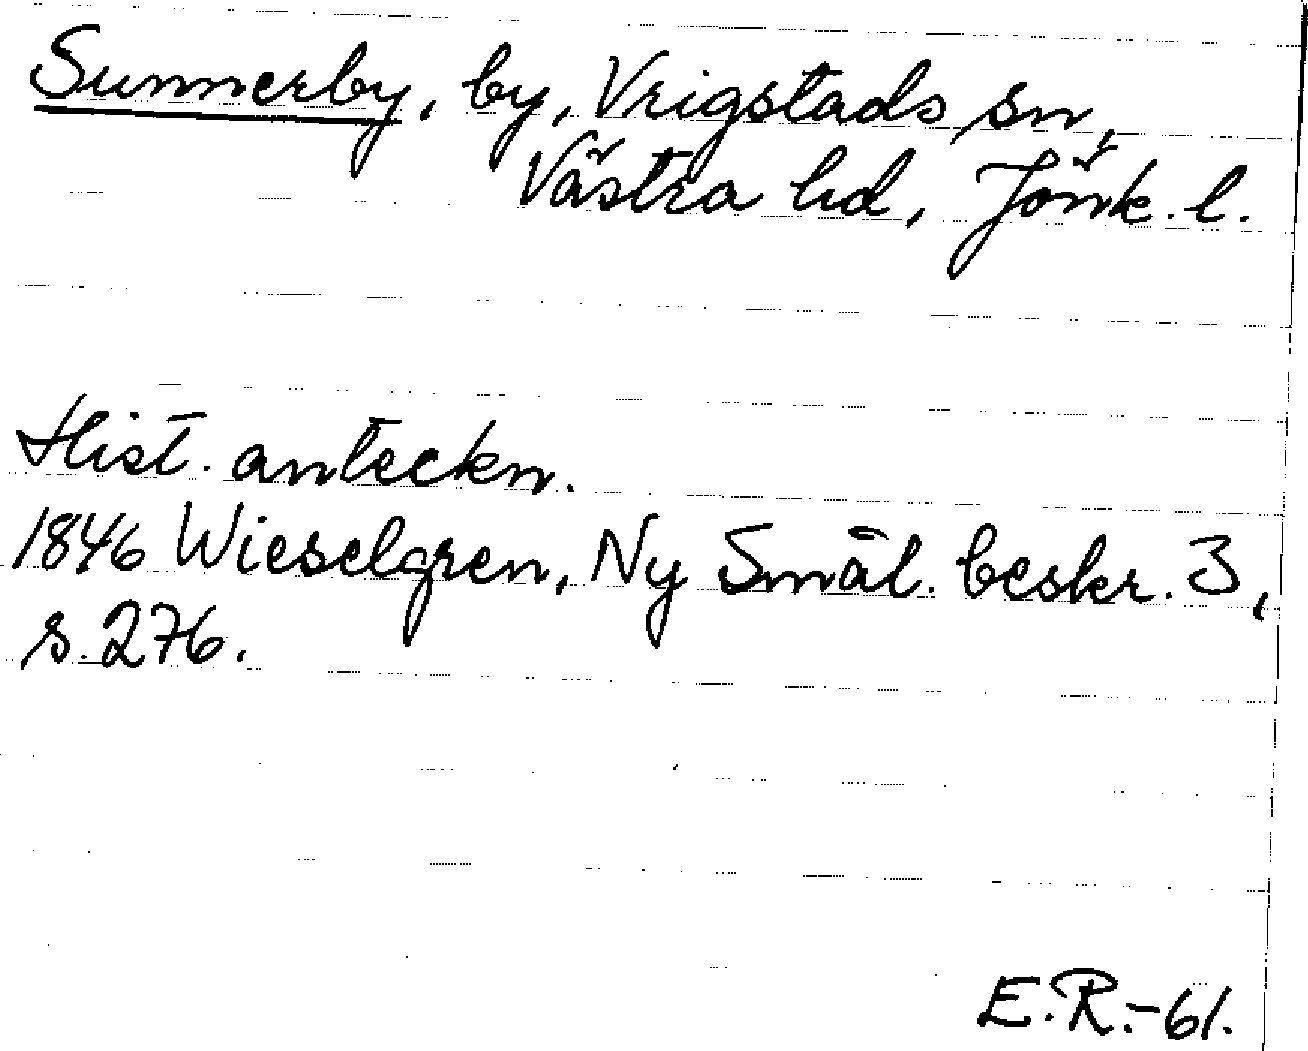 Sunnerby, by, Vrigstads sn,
Västra hd, Jönk. l.
Hist. anteckn.
1846 Wieselgren, Ny Smål. beskr. 3,
s. 276.
E.R.-61.